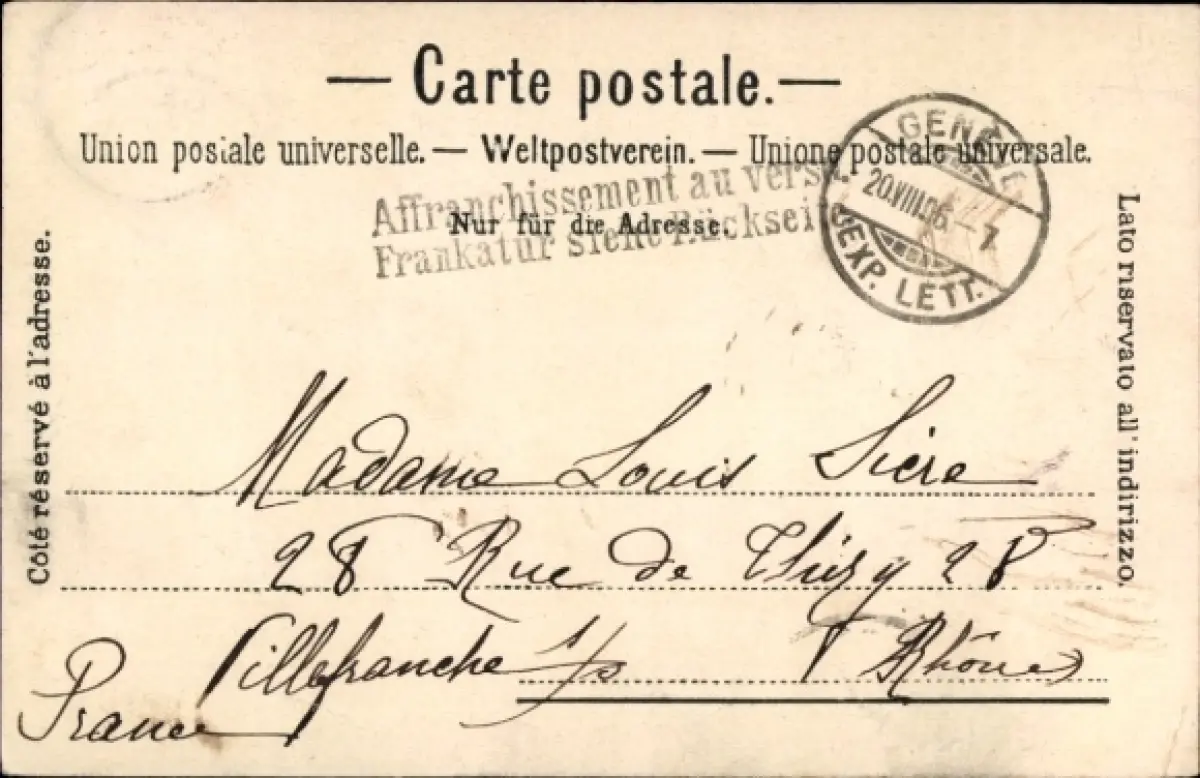 — Carte postale. —
Union postale universelle. — Weltpostverein. — Unione postale universale.
Nur für die Adresse.
Affranchissement au verso.
Frankatur siehe Rückseite
GENÈVE
20.VIII.06.–7
EXP. LETT.
Côté réservé à l'adresse.
Lato riservato all'indirizzo.
Madame Louis Sicre
28 Rue de Thizy 28
Villefranche s/s Rhône
France